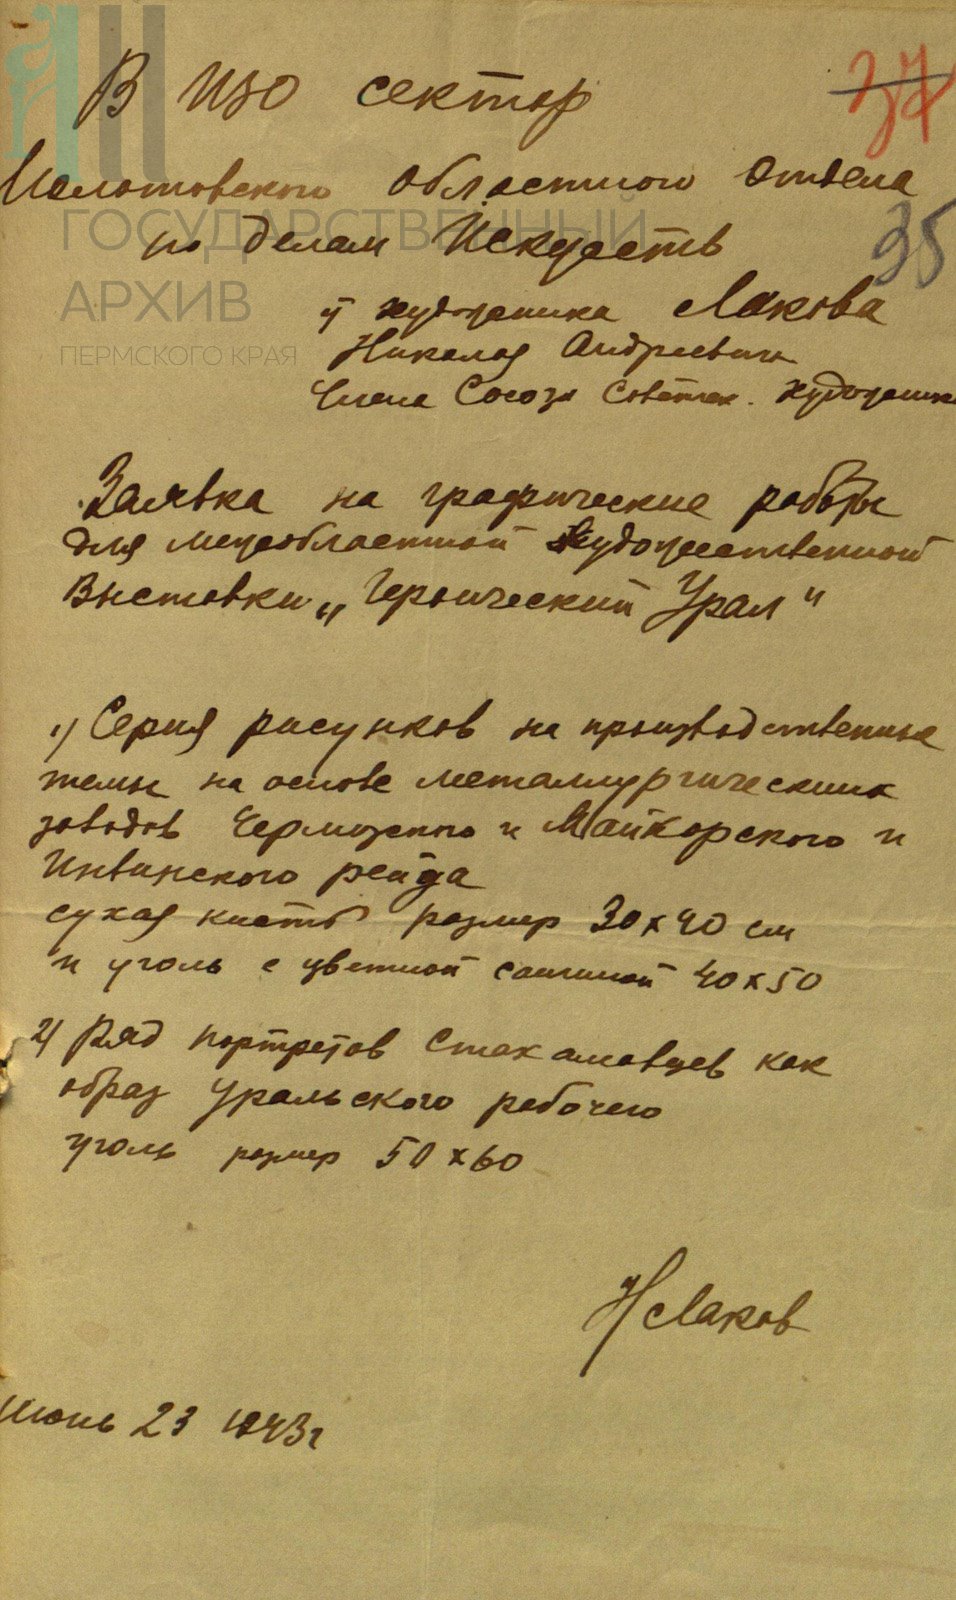 37
В ИЗО сектор
Молотовского областного отдела
по делам Искусств
35
художника Лакова
Николая Андреевича
Члена Союза Советск. художник
Заявка на графические работы
для межобластной художественной
Выставки „Героический Урал"
1) Серия рисунков на производственные
темы на основе металлургических
заводов Чермозского и Майкорского и
Иньвинского рейда
сухая кисть размер 30x40 см
и уголь с цветной сангиной 40x50
2) Ряд портретов Стахановцев как
образ Уральского рабочего
уголь размер 50x60
НЛаков
Июнь 23 1943г
ГОСУДАРСТВЕННЫЙ
АРХИВ
ПЕРМСКОГО КРАЯ